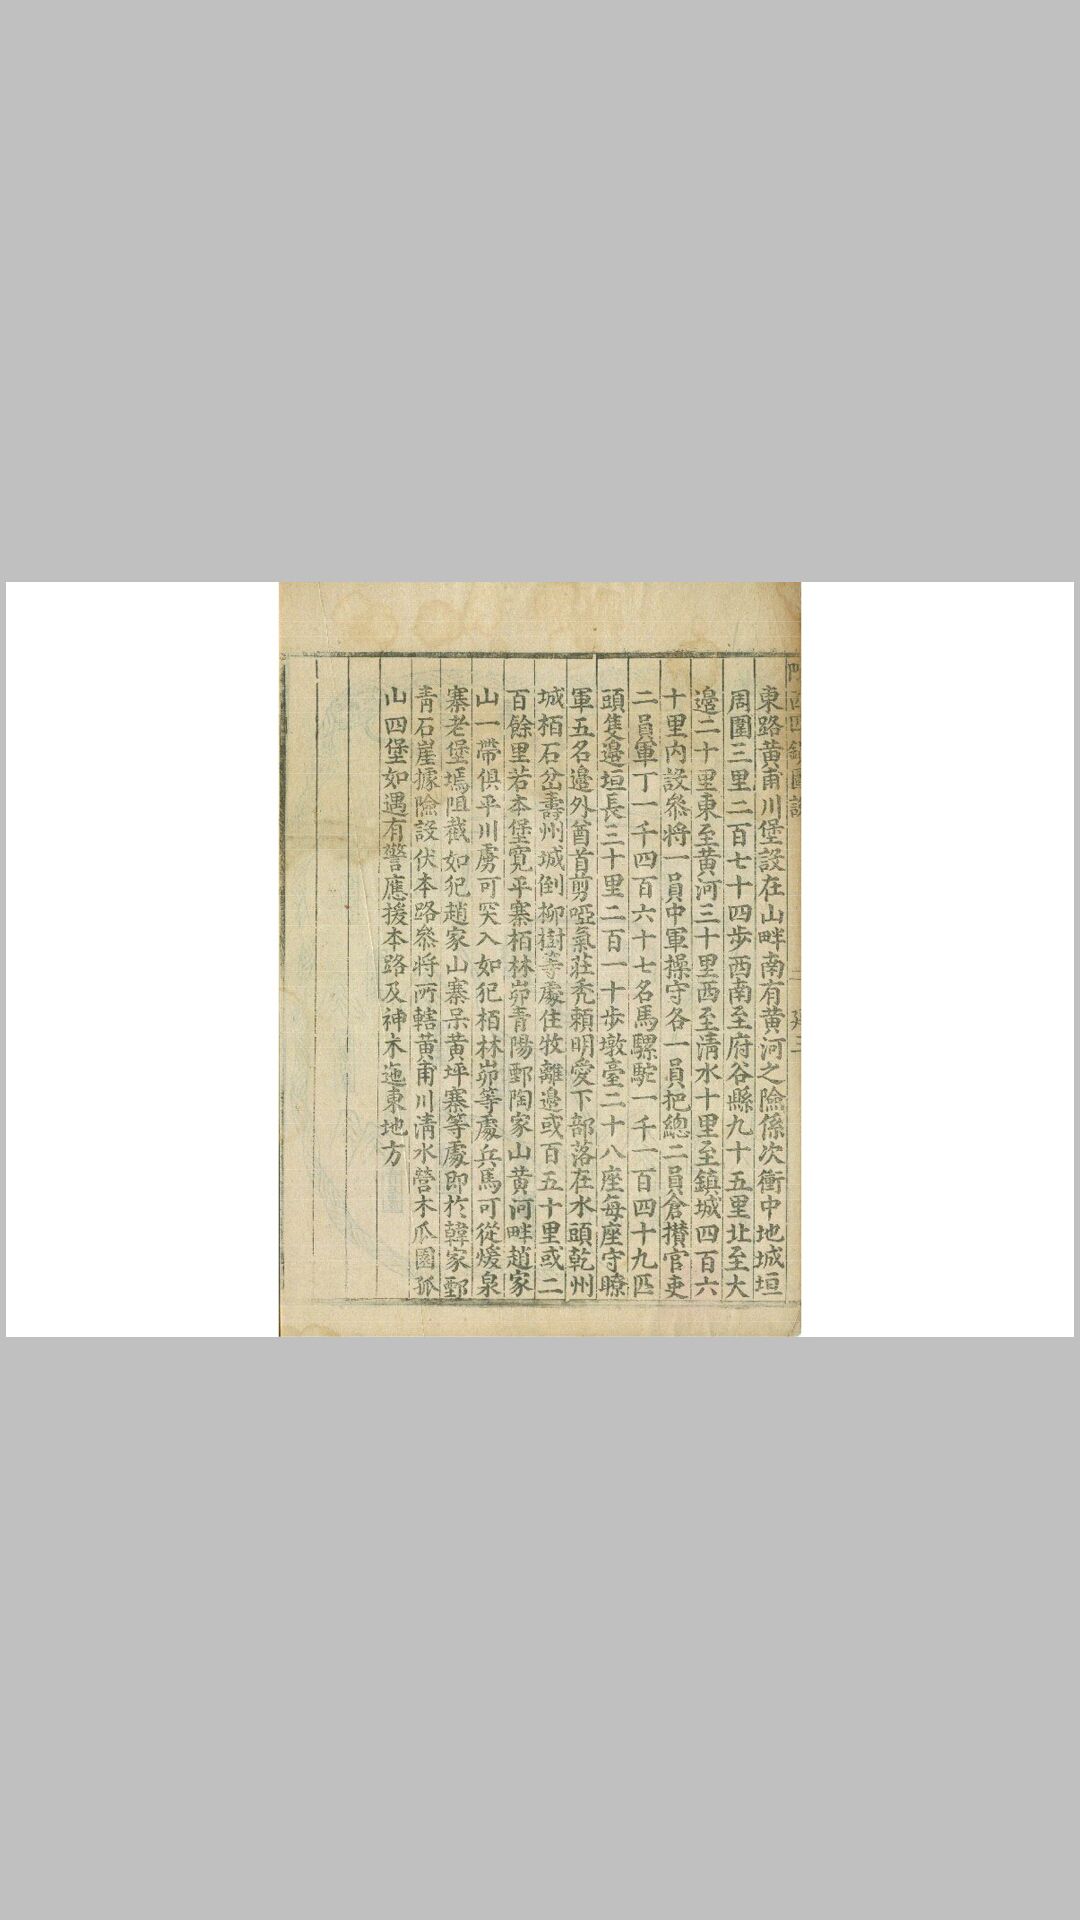 東路黃甫川堡設在山畔南有黃河之險係次衝中地城垣
周圍三里二百七十四步西南至府谷縣九十五里北至大
邊二十里東至黃河三十里西至清水十里至鎮城四百六
十里內設叅將一員中軍操守各一員把總二員倉攢官吏
二員軍丁一千四百六十七名馬騾駝一千一百四十九匹
頭隻邊垣長三十里二百一十步墩臺二十八座每座守瞭
軍五名邊外酋首剪啞氣莊禿賴明愛下部落在水頭乾州
城栢石岔壽州城倒柳樹等處住牧離邊或百五十里或二
百餘里若本堡寬平寨栢林峁青陽鄄陶家山黃河畔趙家
山一帶俱平川虜可突入如犯栢林峁等處兵馬可從煖泉
寨老堡塢阻截如犯趙家山寨呆黃坪寨等處即於韓家鄄
青石崖據險設伏本路叅將所轄黃甫川清水營木瓜園孤
山四堡如遇有警應援本路及神木迤東地方